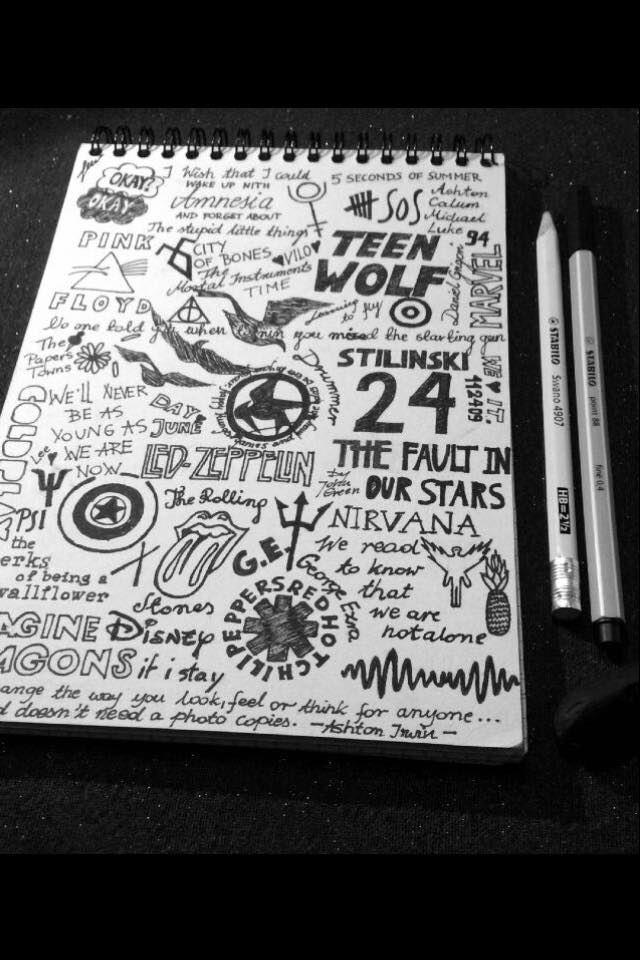 OKAY?
OKAY
I Wish that I could
WAKE UP WITH
Amnesia
AND FORGET ABOUT
The stupid little things
5 SECONDS OF SUMMER
SOS
Ashton
Calum
Michael
Luke
94
PINK
FLOYD
CITY
OF BONES
VILO
The
Mortal Instruments
TIME
TEEN
WOLF
Learning to fly
MARVEL
No one told you when to run you missed the starting gun
The
Papers
Towns
Drummer
STILINSKI
24
112409
WE ♥ IT.
COLDPLAY
WE'LL NEVER
BE AS
YOUNG AS
WE ARE
NOW
DAY
JUNE
LED-ZEPPELIN
THE FAULT IN
OUR STARS
by
John
Green
PSI
The Rolling
Stones
NIRVANA
G.E.
George Ezra
We read
to know
that
we are
not alone
the
erks
of being a
wallflower
RED HOT CHILI PEPPERS
AGINE
AGONS
Disney
if i stay
ange the way you look, feel or think for anyone...
d doesn't need a photo copies. -Ashton Irwin-
STABILO
Swano 4907
HB=2½
STABILO
point 88
fine 0,4